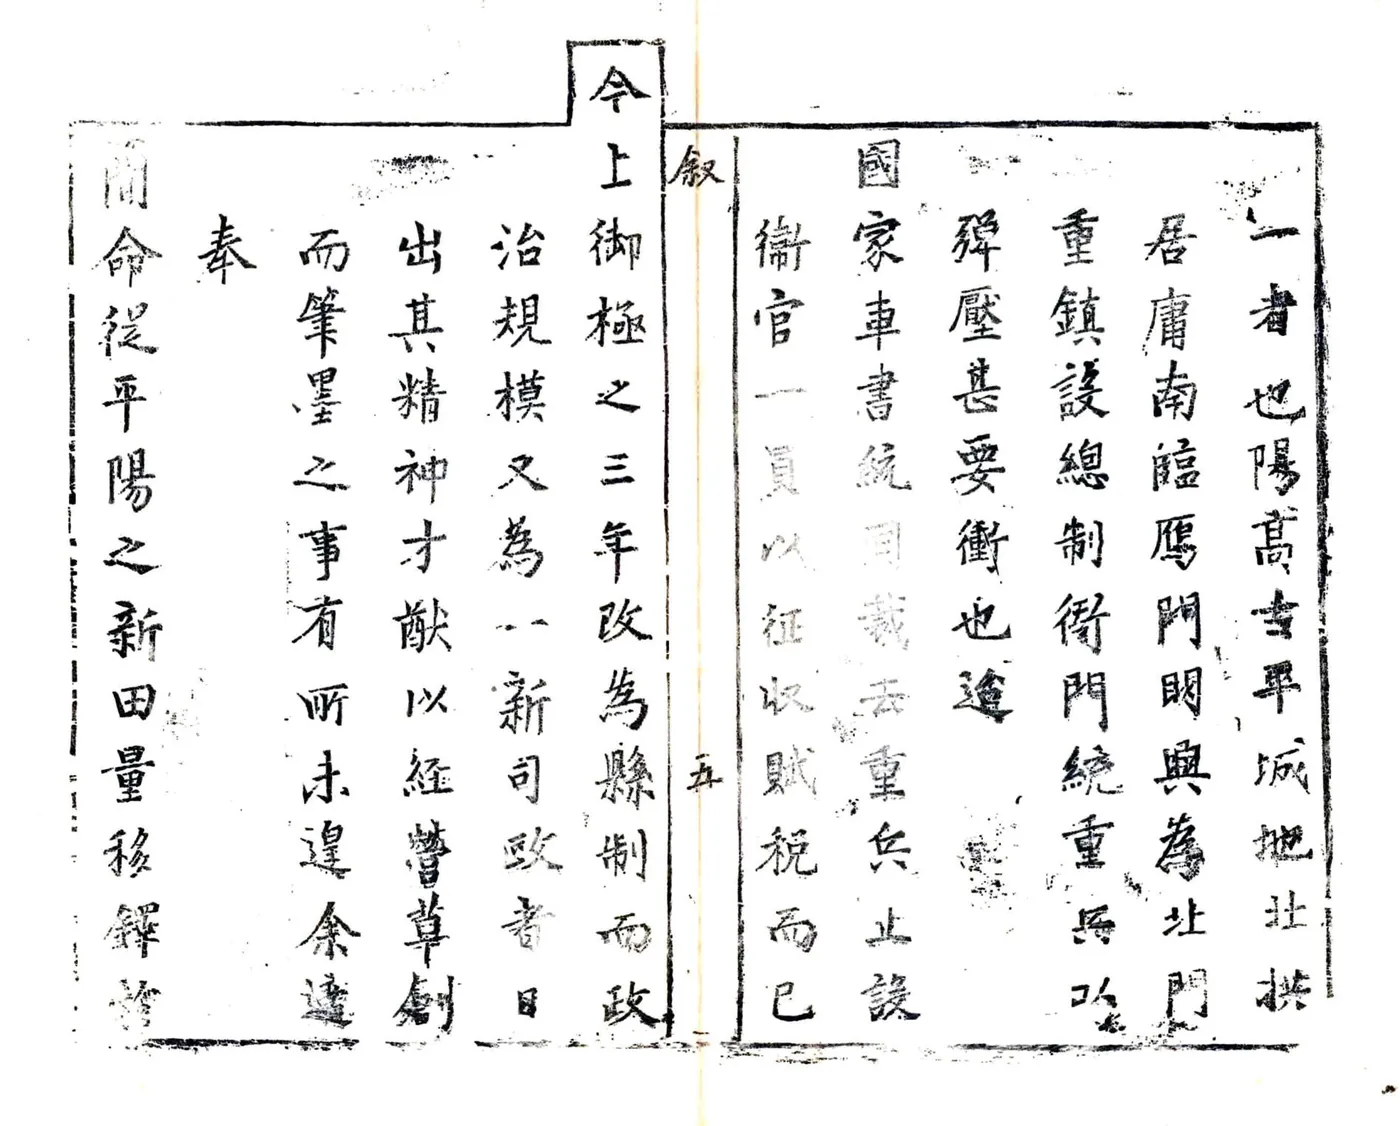 一者也陽高古平城地北拱
居庸南臨鴈門明興為北門
重鎮設總制衙門統重兵以
彈壓甚要衝也迨
國家車書統同裁去重兵止設
衛官一員以征収賦稅而已
叙
五
今上御極之三年改為縣制而政
治規模又為一新司政者日
出其精神才猷以経營草創
而筆墨之事有所未遑余遵
奉
簡命從平陽之新田量移鐸